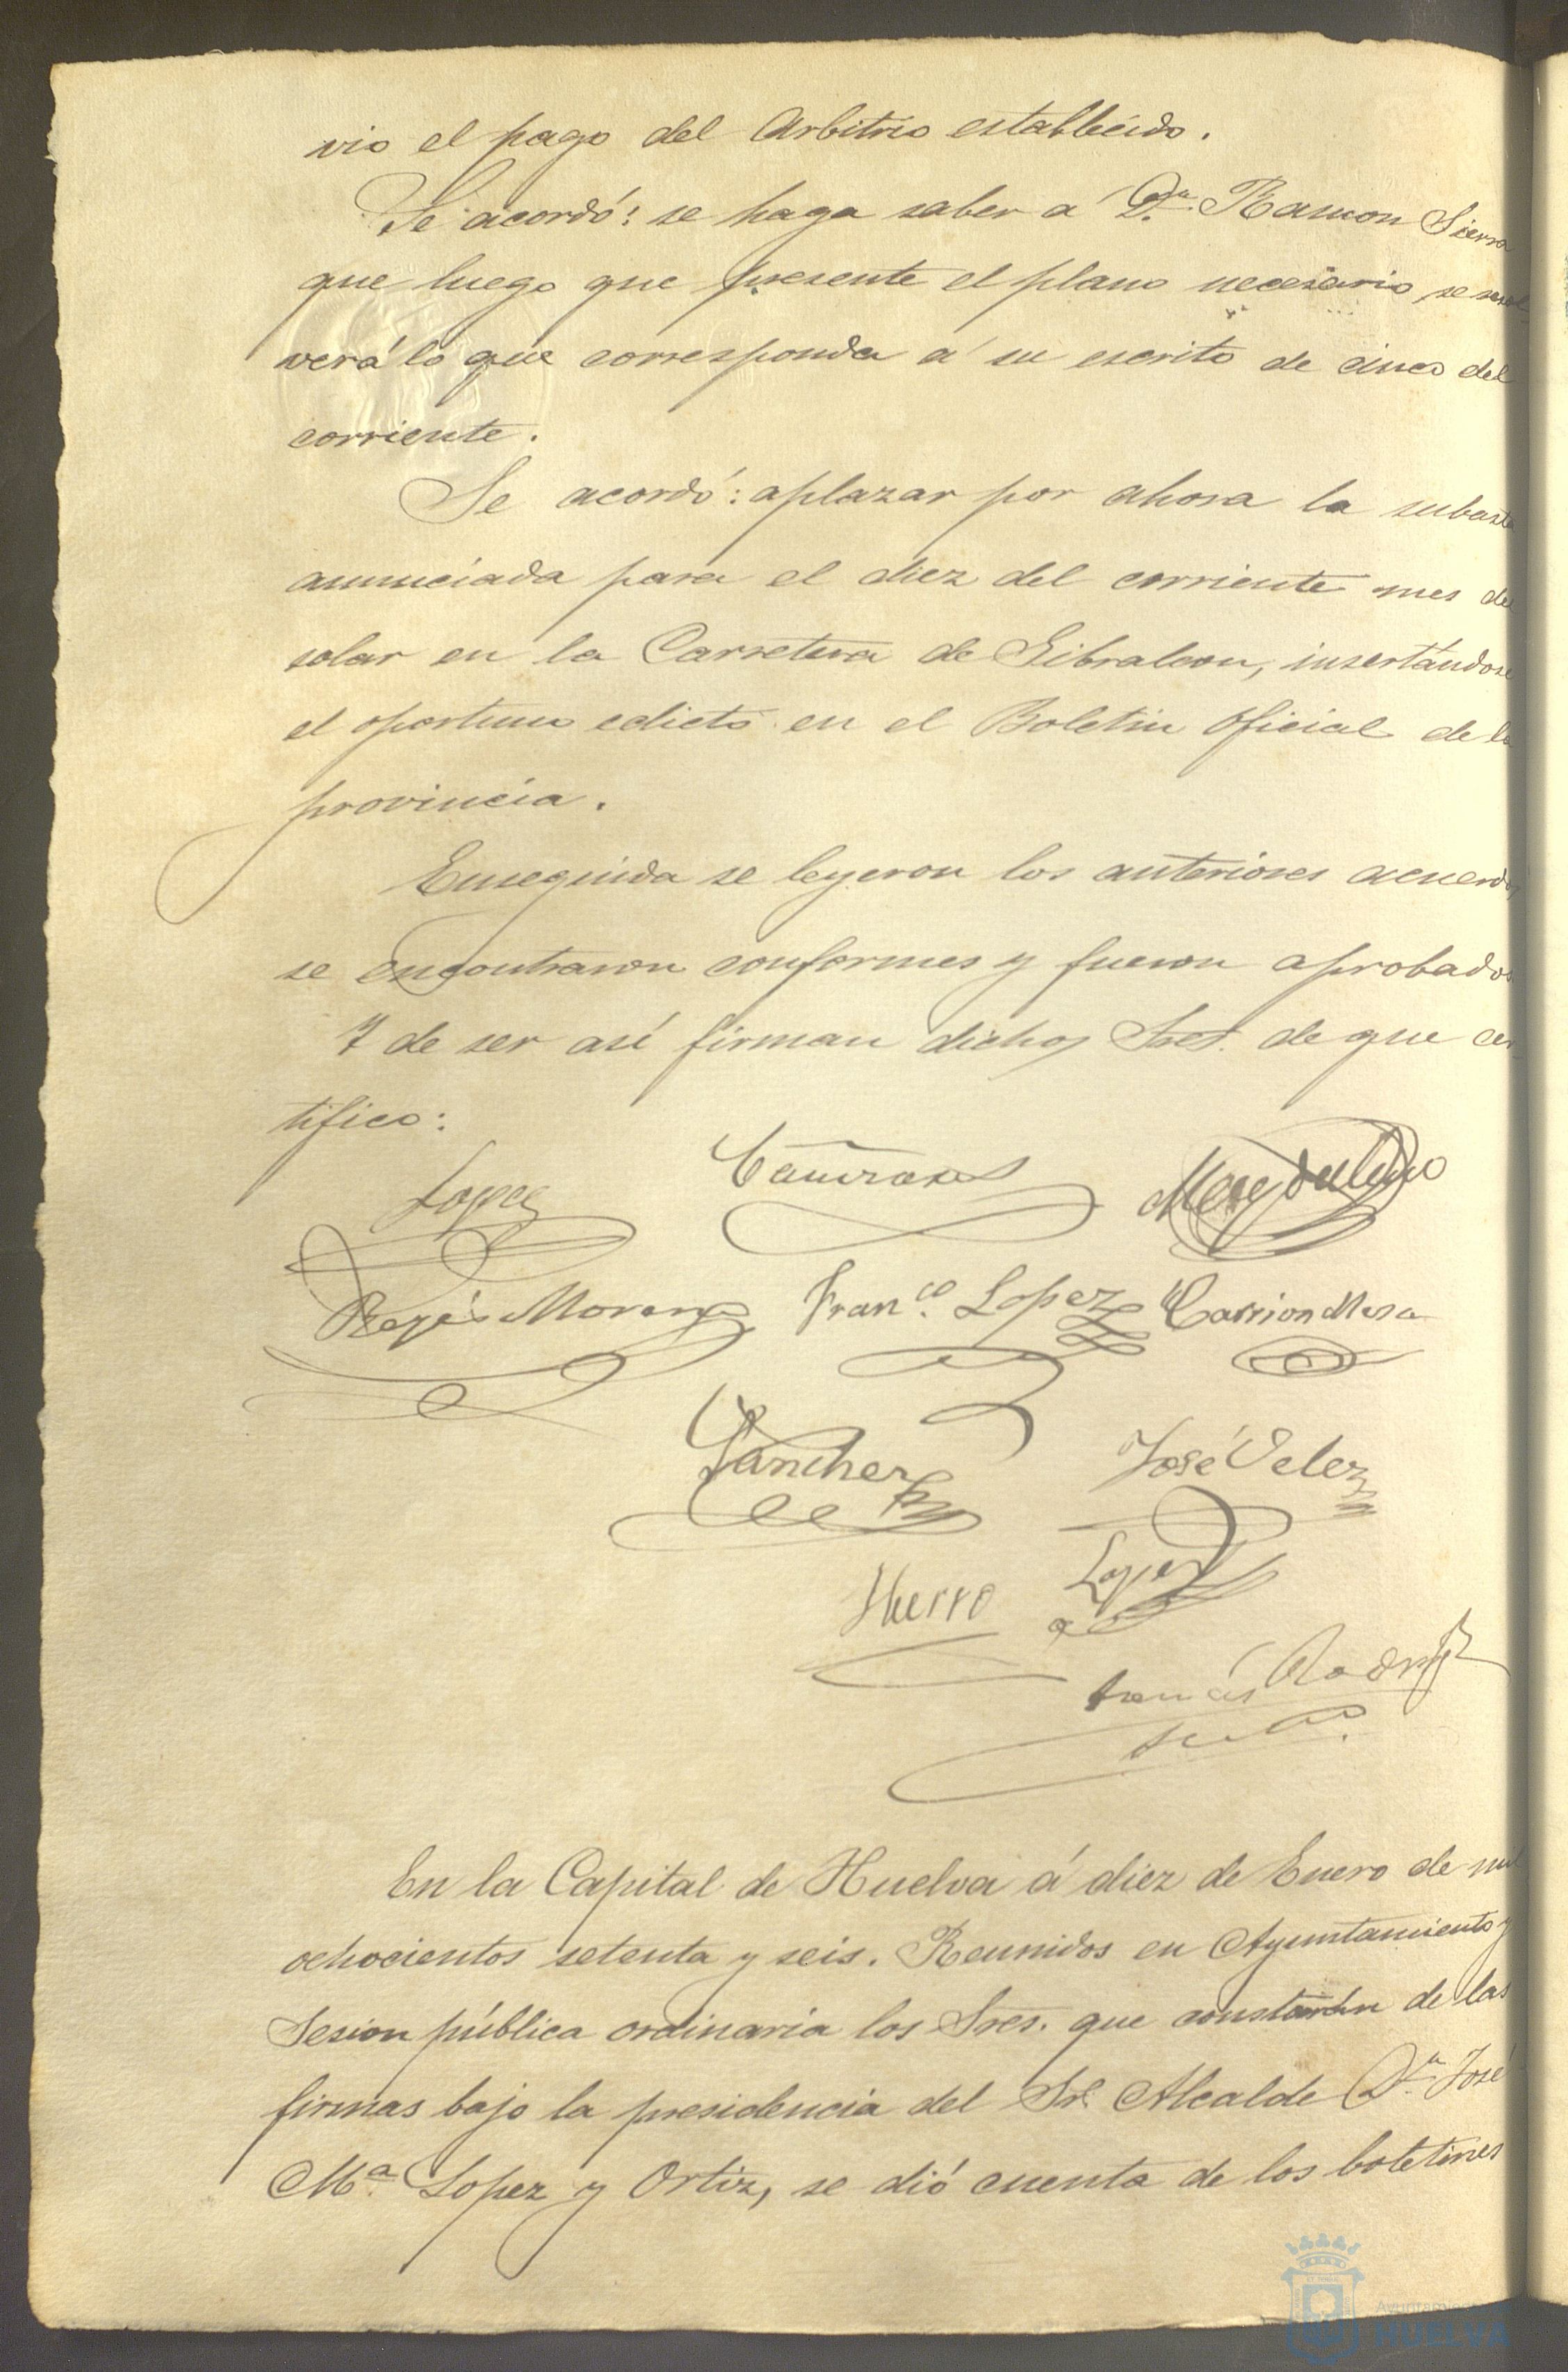 vio el pago del Arbitrio establecido.
Se acordó: se haga saber a Dn. Ramon Sierra
que luego que presente el plano necesario se resol-
verá lo que corresponda á su escrito de cinco del
corriente.
Se acordó: aplazar por ahora la subasta
anunciada para el diez del corriente mes de
solar en la Carretera de Gibraleon, insertándose
el oportuno edicto en el Boletin Oficial de la
provincia.
Enseguida se leyeron los anteriores acuerdos,
se encontraron conformes y fueron aprobados.
Y de ser así firman dichos Sres. de que cer-
tifico:
Lopez
Reyes Moreno Franco. Lopez Carrion Mesa
Sanchez José Velez
Hierro Lopez
Tomás Rodrigz
Srio.
En la Capital de Huelva á diez de Enero de mil
ochocientos setenta y seis. Reunidos en Ayuntamiento y
Sesion pública ordinaria los Sres. que constarán de las
firmas bajo la presidencia del Sr. Alcalde Dn. José
Ma. Lopez y Ortiz, se dió cuenta de los boletines
Ayuntamiento
HUELVA